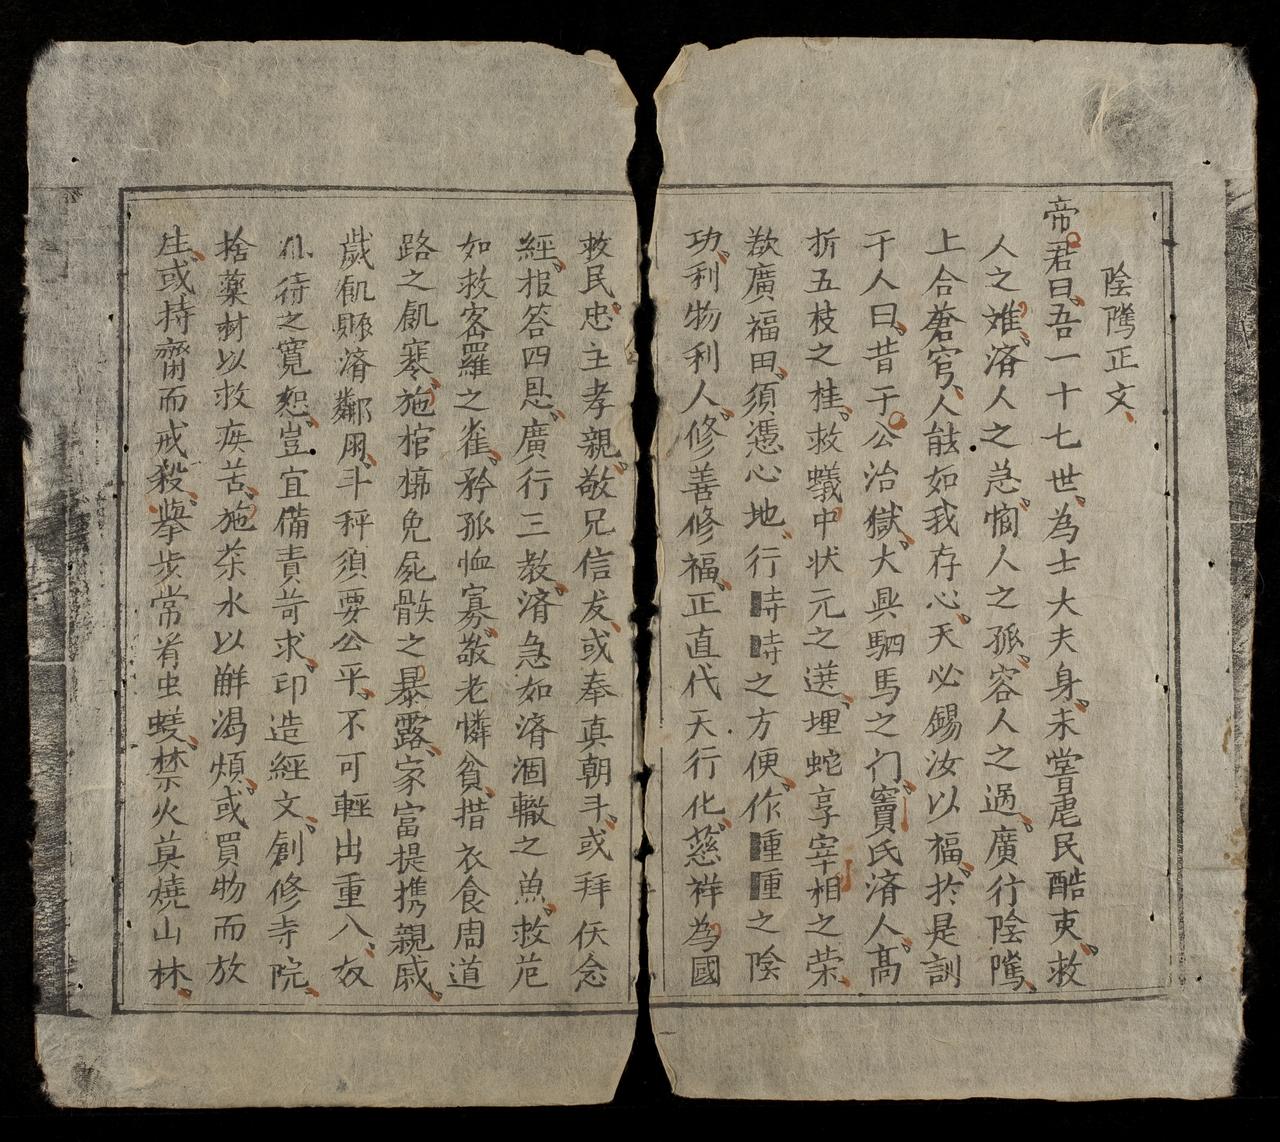 陰騭正文
帝君曰吾一十七世為士大夫身未嘗虐民酷吏救
人之难濟人之急悯人之孤容人之過廣行陰騭
上合蒼穹人能如我存心天必錫汝以福於是訓
于人曰昔于公治獄大興駟馬之门竇氏濟人高
折五枝之桂救蟻中状元之選埋蛇享宰相之荣
欲廣福田須憑心地行時時之方便作種種之陰
功利物利人修善修福正直代天行化慈祥為國
救民忠主孝親敬兄信友或奉真朝斗或拜仸念
經报答四恩廣行三教濟急如濟涸轍之魚救危
如救密羅之雀矜孤恤寡敬老憐貧措衣食周道
路之飢寒施棺槨免屍骸之暴露家富提携親戚
歲飢賑濟鄰朋斗秤須要公平不可輕出重入奴
仆待之寬恕豈宜備責苛求印造經文創修寺院
捨藥材以救疾苦施茶水以解渴煩或買物而放
生或持齋而戒殺舉步常看虫蟻禁火莫燒山林